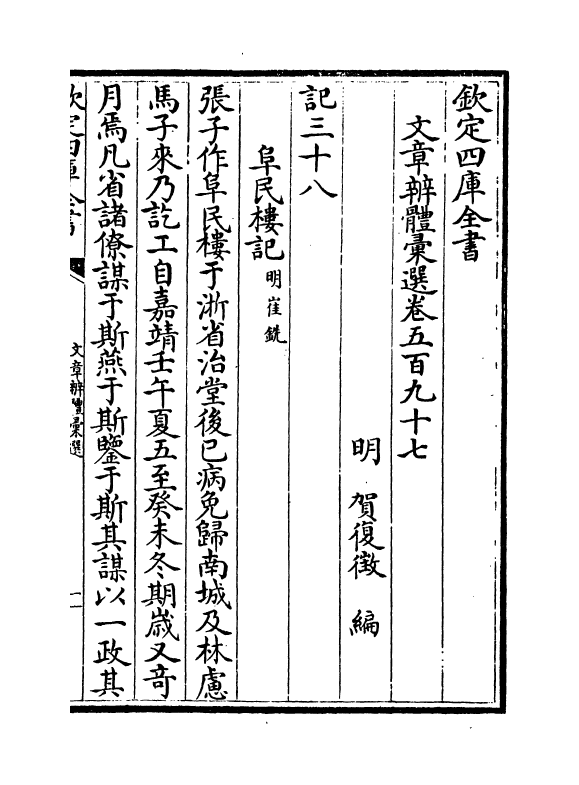 欽定四庫全書
文章辨體彙選卷五百九十七
明 賀復徵 編
記三十八
阜民樓記明崔銑
張子作阜民樓于浙省治堂後已病免歸南城及林慮
馬子來乃訖工自嘉靖壬午夏五至癸未冬期嵗又竒
月焉凡省諸僚謀于斯燕于斯鑒于斯其謀以一政其
欽定四庫全書
文章辨體彙選
一